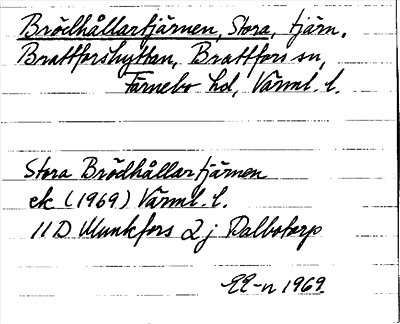 Brödhållartjärnen, Stora, tjärn,
Brattforshyttan, Brattfors sn,
Färnebo hd, Värml. l.
Stora Brödhållartjärnen
ek (1969) Värml. l.
11D Munkfors 2j Dalbotorp
EE-n 1969